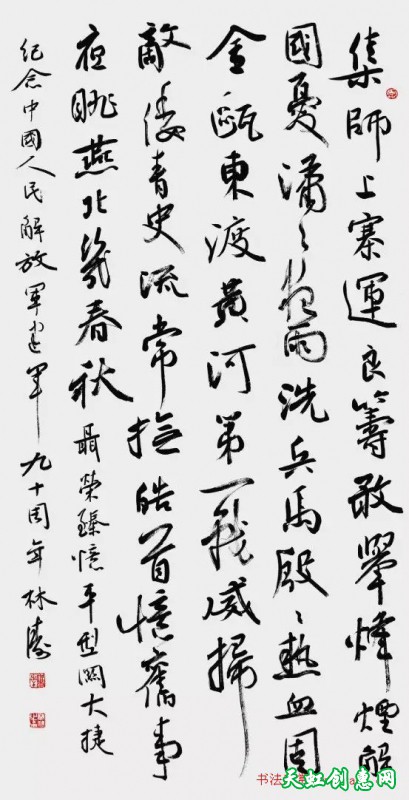 集師上寨運良籌敢舉烽煙解
國憂瀟々夜雨洗兵馬殷々熱血固
金甌東渡黄河第一戰威掃
敵倭青史流常撫皓首憶舊事
夜眺燕北幾春秋 聶榮臻憶平型關大捷
紀念中國人民解放軍建軍九十周年 林濤
书法
天虹创惠网